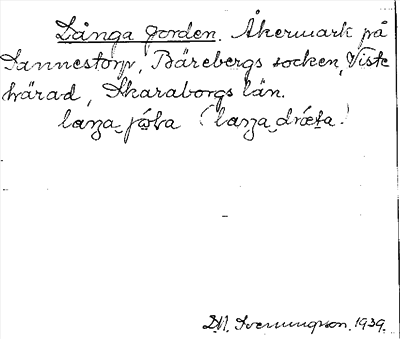 Långa Jorden. Åkermark på
Sannestorp, Bärebergs socken, Viste
härad, Skaraborgs län.
laŋa jo̤ḷa (laŋa drǽta.)
D.M. Svenungsson. 1939.